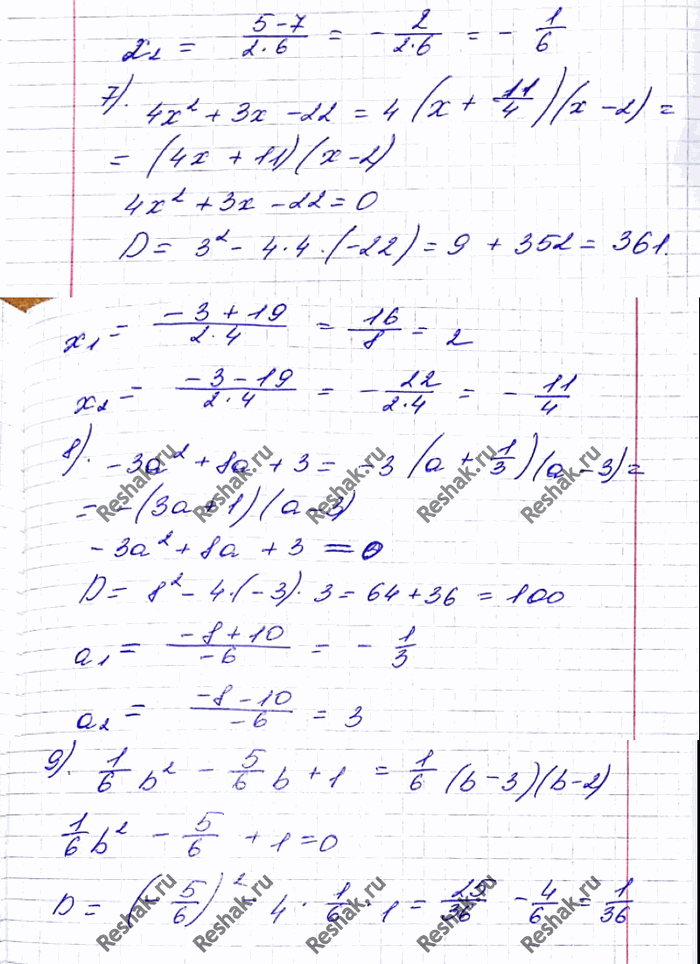 x₂ = (5-7)/(2·6) = -2/(2·6) = -1/6
7). 4x² + 3x - 22 = 4(x + 11/4)(x - 2) =
= (4x + 11)(x - 2)
4x² + 3x - 22 = 0
D = 3² - 4·4·(-22) = 9 + 352 = 361.
x₁ = (-3 + 19)/(2·4) = 16/8 = 2
x₂ = (-3 - 19)/(2·4) = -22/(2·4) = -11/4
8). -3a² + 8a + 3 = -3(a + 1/3)(a - 3) =
= -(3a + 1)(a - 3)
-3a² + 8a + 3 = 0
D = 8² - 4·(-3)·3 = 64 + 36 = 100
a₁ = (-8 + 10)/(-6) = -1/3
a₂ = (-8 - 10)/(-6) = 3
9). 1/6 b² - 5/6 b + 1 = 1/6 (b - 3)(b - 2)
1/6 b² - 5/6 + 1 = 0
D = (-5/6)² - 4 · 1/6 · 1 = 25/36 - 4/6 = 1/36
Reshak.ru Reshak.ru Reshak.ru Reshak.ru Reshak.ru
Reshak.ru Reshak.ru Reshak.ru Reshak.ru Reshak.ru